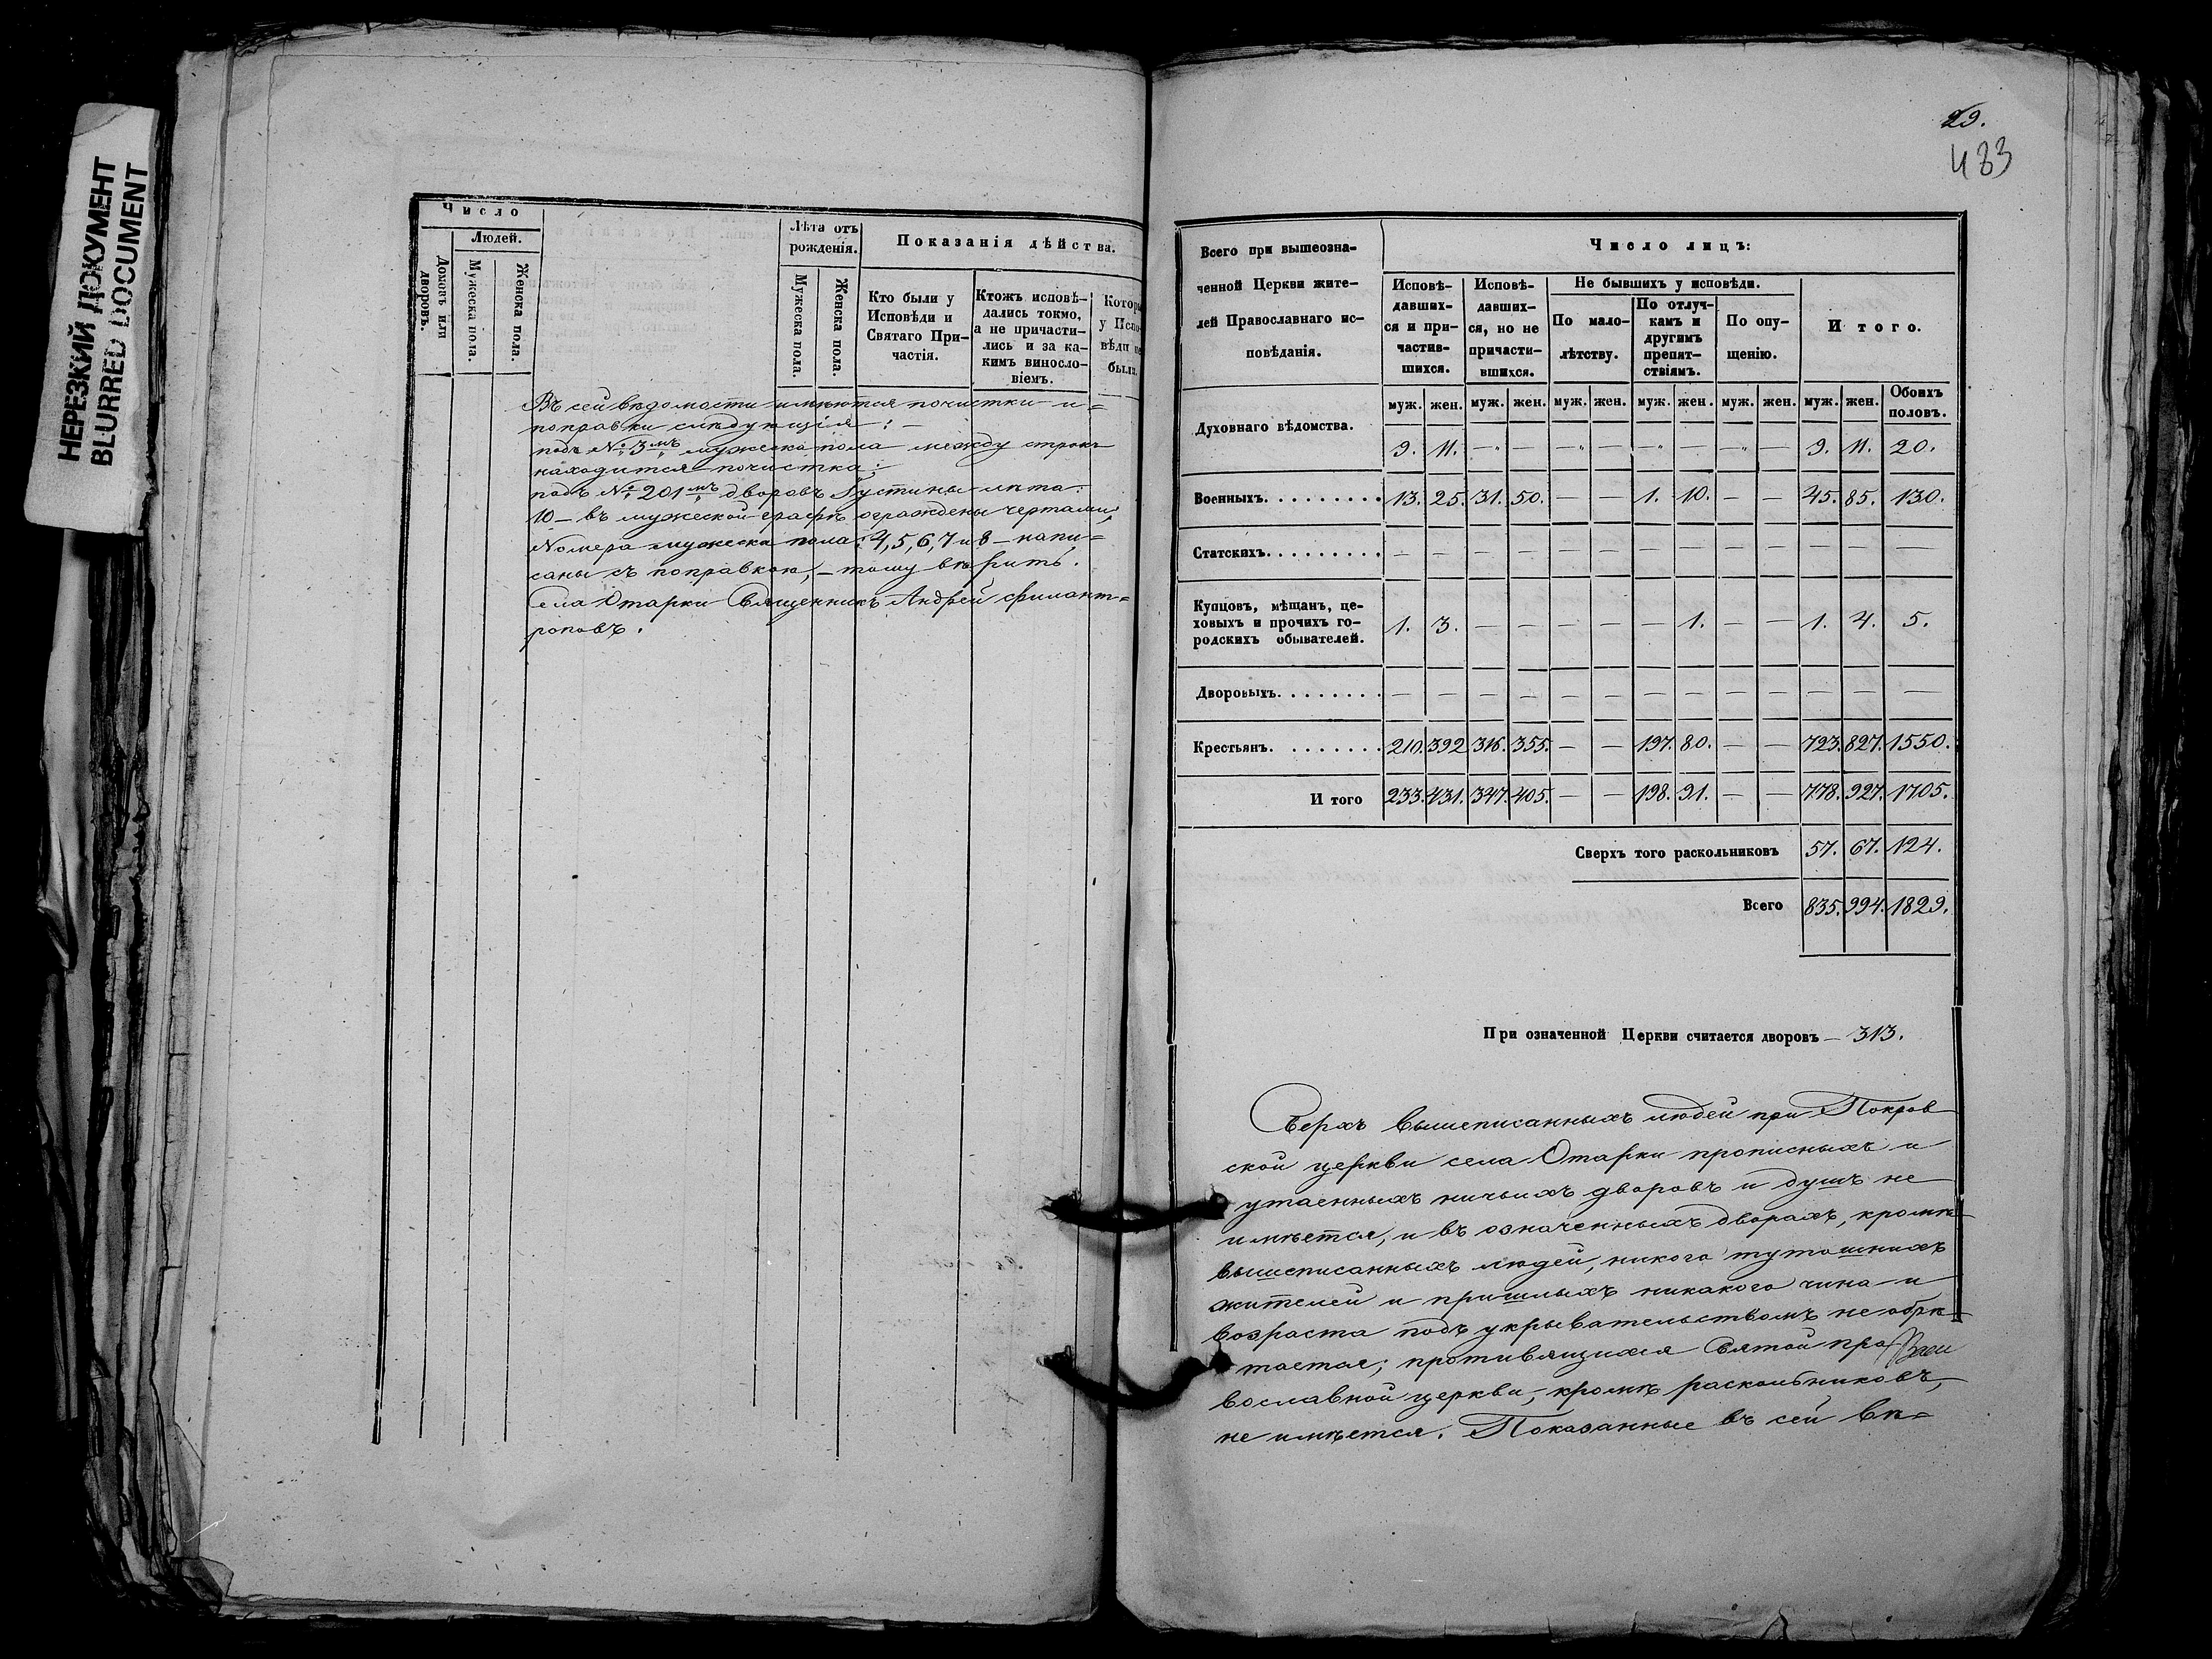 НЕРЕЗКИЙ ДОКУМЕНТ
BLURRED DOCUMENT
Число
Людей.
Домовъ или дворовъ.
Мужеска пола.
Женска пола.
Лѣта отъ рожденія.
Мужеска пола.
Женска пола.
Показанія дѣйства.
Кто были у Исповѣди и Святаго При-
частія.
Ктожъ исповѣ-
дались токмо,
а не причасти-
лись и за ка-
кимъ винносло-
віемъ.
Котор
у Испо-
вѣди не
были.
Въ сей вѣдомости имѣются почистки и=
поправки слѣдующія:
подъ № 3мъ мужеска пола между строкъ
находится почистка;
подъ № 201мъ дворовъ Густины лѣта:
10 – въ мужеской графѣ ограждены чертами;
Номера мужеска пола: 4, 5, 6, 7 и 8 – напи=
саны съ поправкою, – тому вѣрить.
Села Отарки Священникъ Андрей Филант=
роповъ.
29.
483
Всего при вышеозна-
ченной Церкви жите-
лей Православнаго ис-
повѣданія.
Число лицъ:
Исповѣ-
давших-
ся и при-
частив-
шихся.
Исповѣ-
давших-
ся, но не
причасти-
вшихся.
Не бывшихъ у исповѣди.
По мало-
лѣтству.
По отлуч-
камъ и
другимъ
препят-
ствіямъ.
По опу-
щенію.
Итого.
муж. жен. муж. жен. муж. жен. муж. жен. муж. жен. муж. жен. Обоихъ половъ.
Духовнаго вѣдомства. 9. 11. – – – – – – – – 9. 11. 20.
Военныхъ. 13. 25. 31. 50. – – 1. 10. – – 45. 85. 130.
Статскихъ. – – – – – – – – – – – – –
Купцовъ, мѣщанъ, це-
ховыхъ и прочихъ го-
родскихъ обывателей. 1. 3. – – – – – 1. – – 1. 4. 5.
Дворовыхъ. – – – – – – – – – – – – –
Крестьянъ. 210. 392. 316. 355. – – 197. 80. – – 723. 827. 1550.
И того 233. 431. 347. 405. – – 198. 91. – – 778. 927. 1705.
Сверхъ того раскольниковъ 57. 67. 124.
Всего 835. 994. 1829.
При означенной Церкви считается дворовъ – 313.
Сверхъ вышеписанныхъ людей при Покров
ской церкви села Отарки прописныхъ и
утаенныхъ ничьихъ дворовъ и душъ не
имѣется, и въ означенныхъ дворахъ, кромѣ
вышеписанныхъ людей, никого тутошнихъ
жителей и пришлыхъ никакого чина и
возраста подъ укрывательствомъ не обрѣ
тается; противящихся Святой пра
вославной церкви, кромѣ раскольниковъ,
не имѣется. Показанные въ сей вѣ=